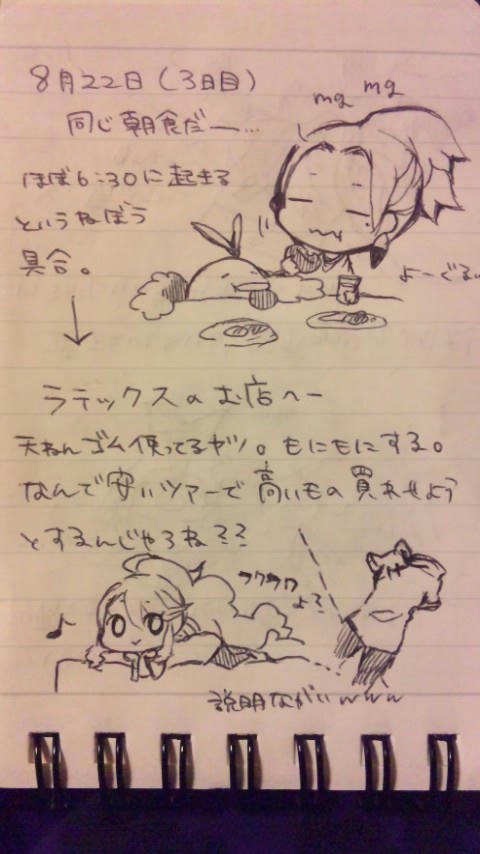 8月22日(3日目)
mg mg
同じ朝食だー…
ほぼ6:30に起きる
というねぼう
具合。
よーぐる
ラテックスのお店へー
天ねんゴム使ってるヤツ。もにもにする。
なんで安いツアーで高いもの買わせよう
とするんじゃろね??
フワフワ
よ?
♪
説明ながいwww